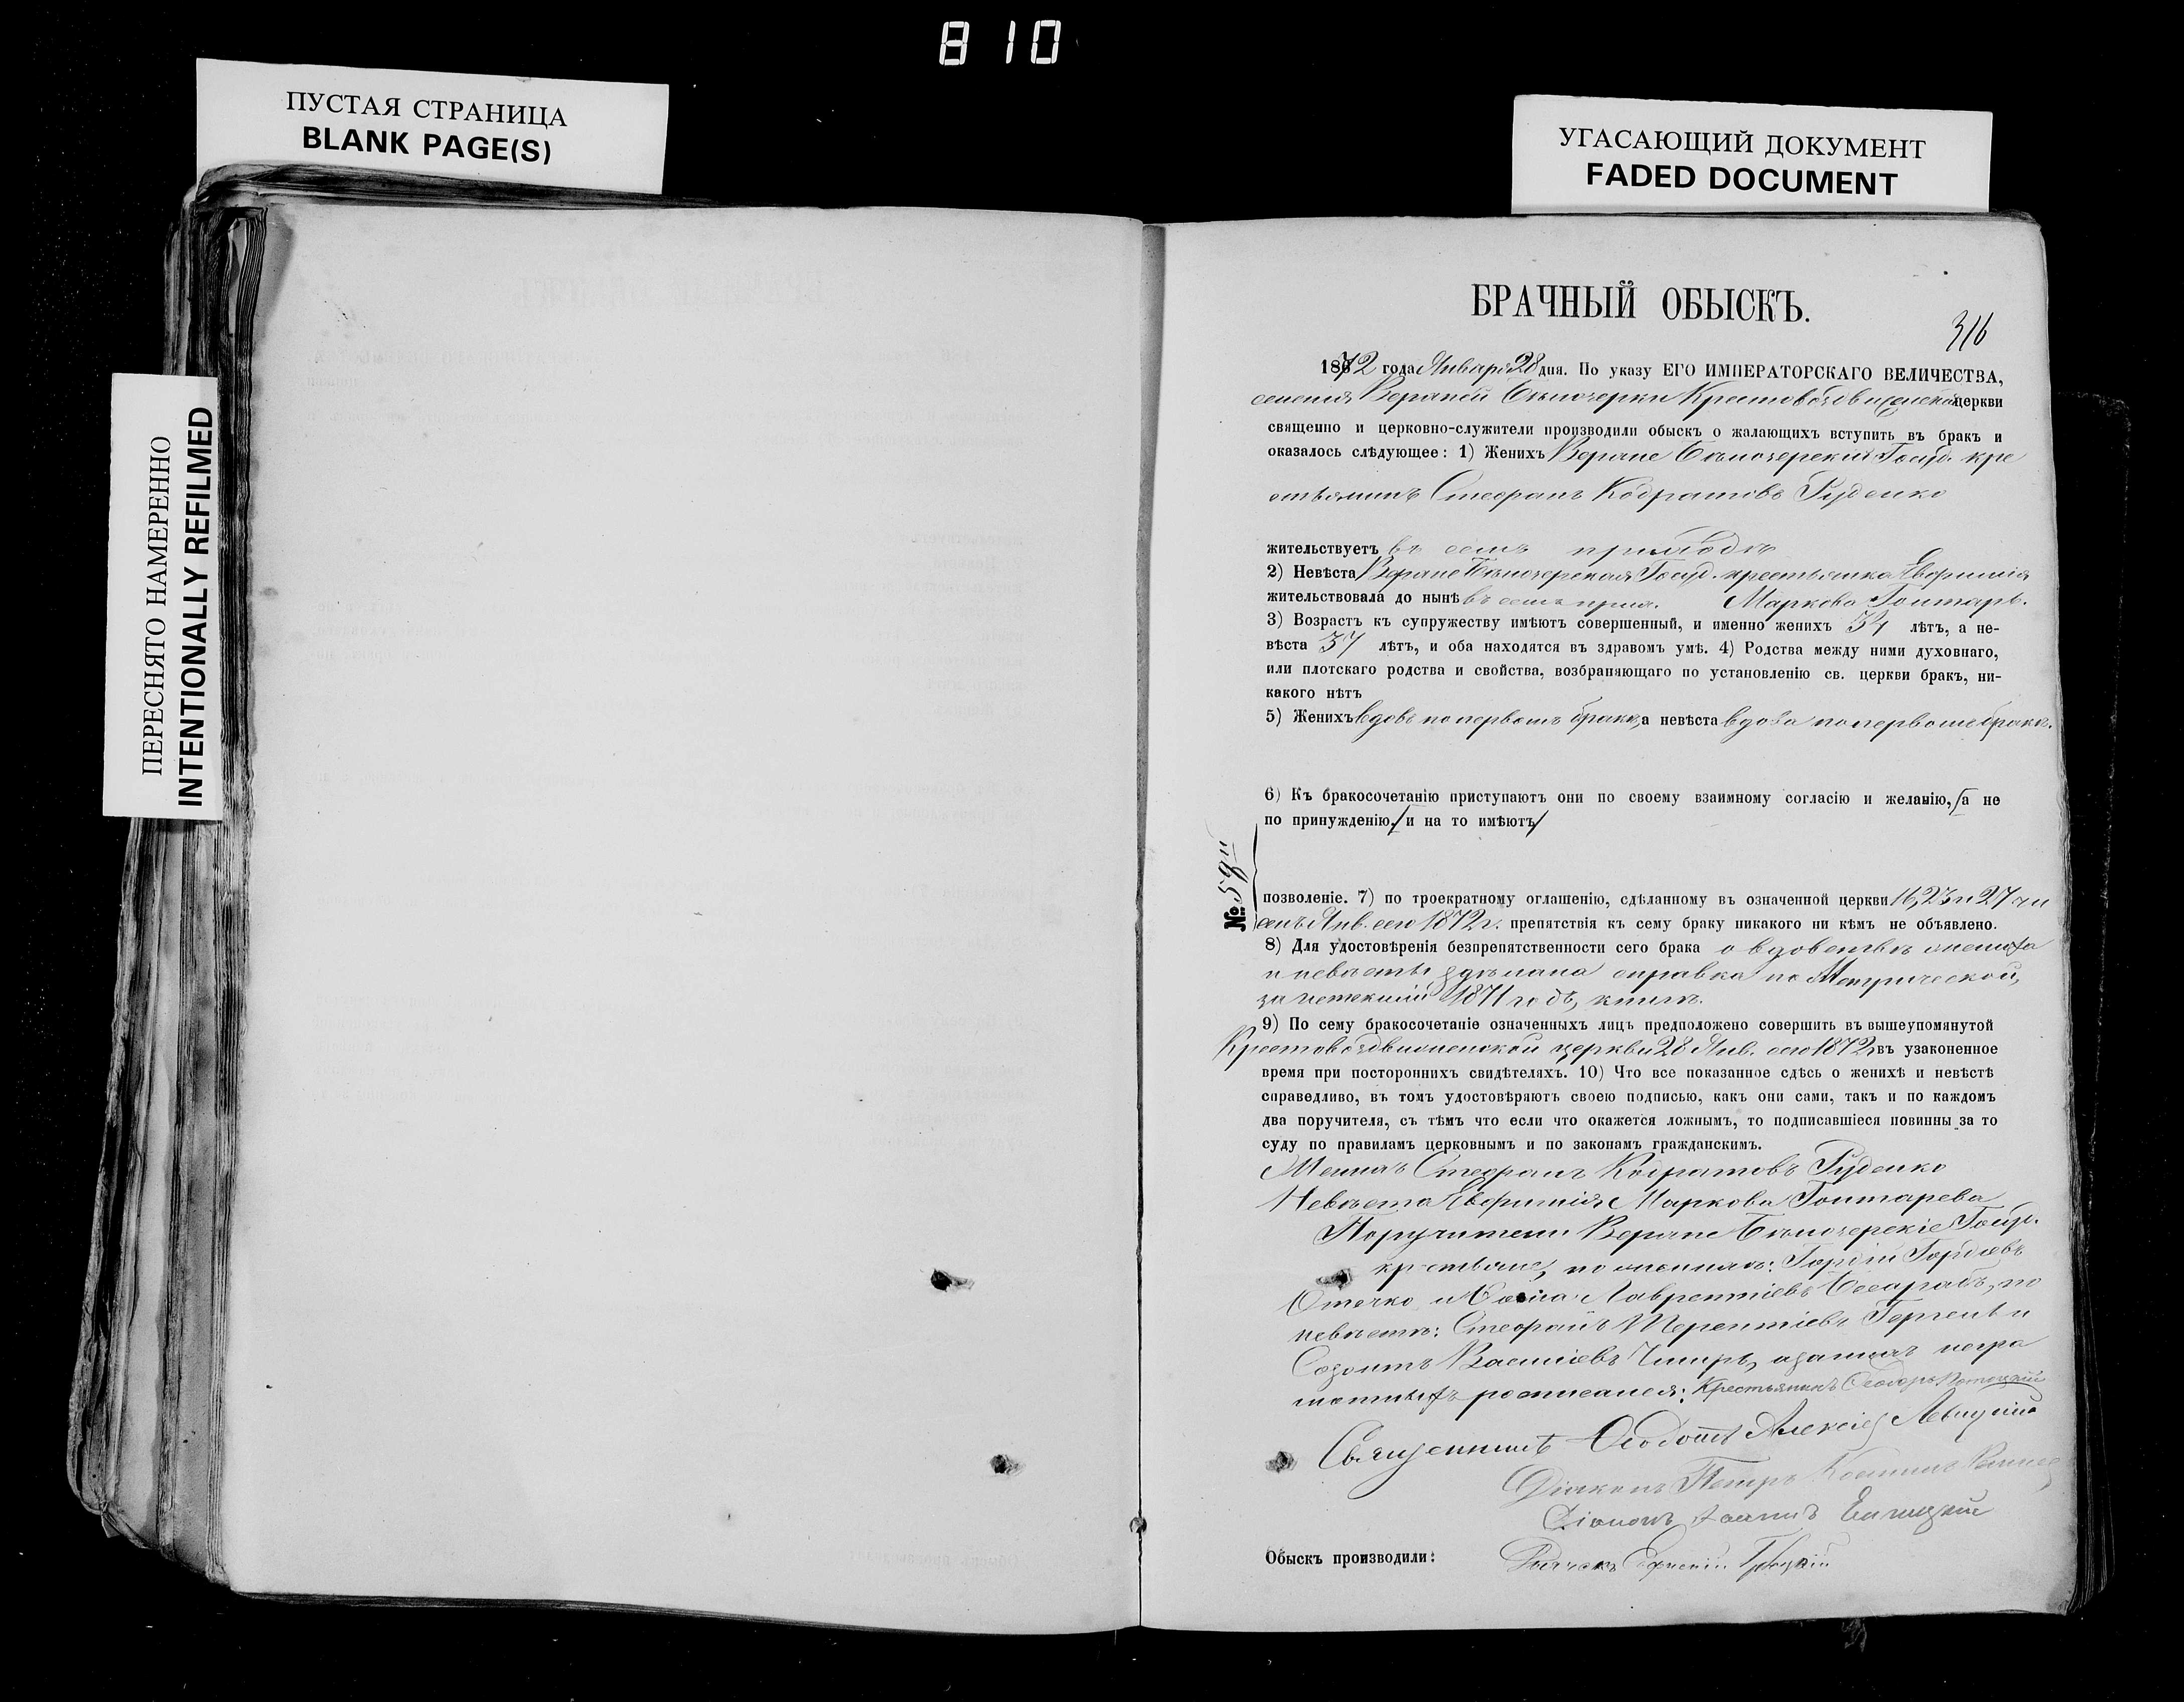 810
ПУСТАЯ СТРАНИЦА
BLANK PAGE(S)
УГАСАЮЩИЙ ДОКУМЕНТ
FADED DOCUMENT
ПЕРЕСНЯТО НАМЕРЕННО
INTENTIONALLY REFILMED
БРАЧНЫЙ ОБЫСКЪ.
316
1872 года Января 28 дня. По указу ЕГО ИМПЕРАТОРСКАГО ВЕЛИЧЕСТВА,
селенія Верхней Крестовоздвиженской церкви
священно и церковно-служители производили обыскъ о жалающихъ вступить въ бракъ и
оказалось слѣдующее: 1) Женихъ Госуд. кре
стьянинъ Стефанъ Кодратовъ Руденко
жительствуетъ въ семъ приходѣ
2) Невѣста Госуд. крестьянка Евфимія
жительствовала до нынѣ въ семъ прих. Маркова Гонтарь.
3) Возрастъ къ супружеству имѣютъ совершенный, и именно женихъ 34 лѣтъ, а не-
вѣста 37 лѣтъ, и оба находятся въ здравомъ умѣ. 4) Родства между ними духовнаго,
или плотскаго родства и свойства, возбраняющаго по установленію св. церкви бракъ, ни-
какого нѣтъ
5) Женихъ вдовъ по первомъ бракѣ, а невѣста вдова по первомъ бракѣ.
6) Къ бракосочетанію приступаютъ они по своему взаимному согласію и желанію, а не
по принужденію, и на то имѣютъ
№ 5
позволеніе. 7) по троекратному оглашенію, сдѣланному въ означенной церкви 16, 23 и 27 чи
селъ Янв. сего 1872 г. препятствія къ сему браку никакого ни кѣмъ не объявлено.
8) Для удостовѣренія безпрепятственности сего брака о вдовствѣ жениха
и невѣсты здѣлана справка по Метрической,
за истекшій 1871 годъ, книгѣ.
9) По сему бракосочетаніе означенныхъ лицъ предположено совершить въ вышеупомянутой
Крестовоздвиженской церкви 28 Янв. сего 1872 въ узаконенное
время при постороннихъ свидѣтеляхъ. 10) Что все показанное сдѣсь о женихѣ и невѣстѣ
справедливо, въ томъ удостовѣряютъ своею подписью, какъ они сами, такъ и по каждомъ
два поручителя, съ тѣмъ что если что окажется ложнымъ, то подписавшіеся повинны за то
суду по правиламъ церковнымъ и по законамъ гражданскимъ.
Женихъ Стефанъ Кодратовъ Руденко
Невѣста Евфимія Маркова Гонтарева
Поручители Госуд.
крестьяне, по женихѣ: Гордій Гордѣевъ
Отечко и Лаврентіевъ по
невѣстѣ: Стефанъ Терентіевъ и
Созонтъ Василіевъ негра
мотныхъ росписался: Крестьянинъ Ѳеодоръ
Священникъ Ѳеодотъ Алексіевъ Левицкій
Діаконъ Петръ
Діаконъ Іоаннъ
Обыскъ производили: